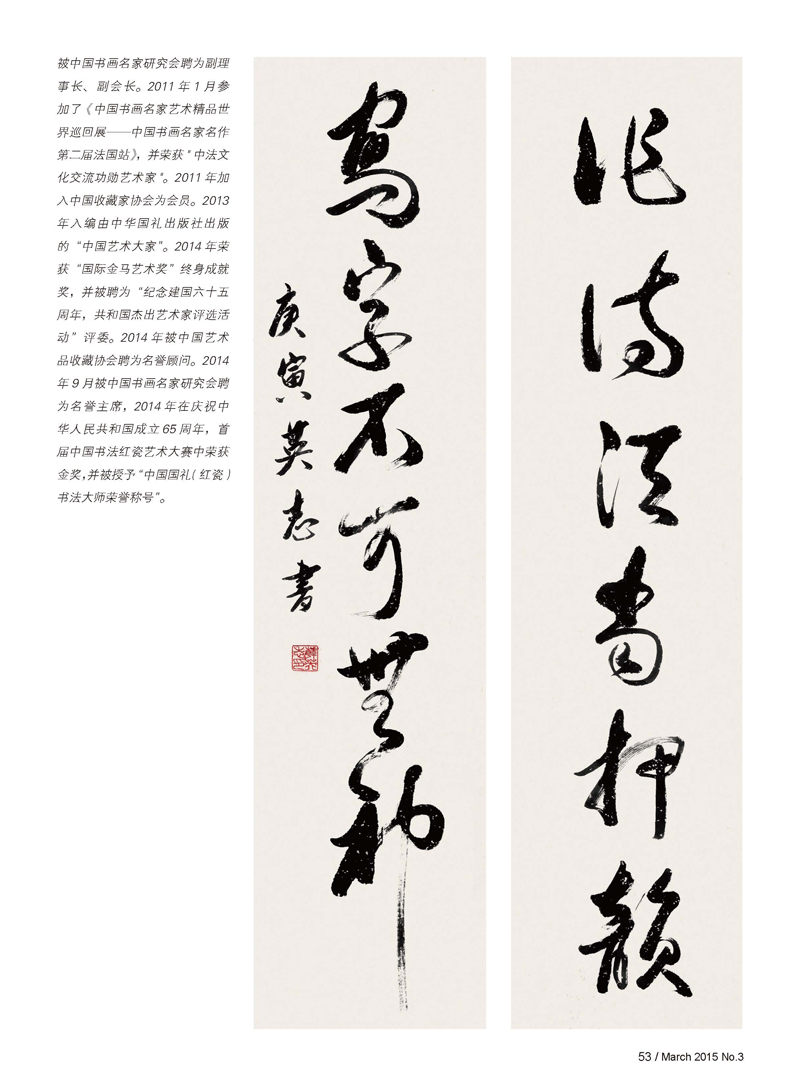 被中国书画名家研究会聘为副理
事长、副会长。2011 年 1 月参
加了《中国书画名家艺术精品世
界巡回展——中国书画名家名作
第二届法国站》，并荣获 "中法文
化交流功勋艺术家 "。2011 年加
入中国收藏家协会为会员。2013
年入编由中华国礼出版社出版
的 “中国艺术大家”。2014 年荣
获 “国际金马艺术奖” 终身成就
奖，并被聘为 “纪念建国六十五
周年，共和国杰出艺术家评选活
动” 评委。2014 年被中国艺术
品收藏协会聘为名誉顾问。2014
年 9 月被中国书画名家研究会聘
为名誉主席，2014 年在庆祝中
华人民共和国成立 65 周年，首
届中国书法红瓷艺术大赛中荣获
金奖，并被授予 “中国国礼( 红瓷 )
书法大师荣誉称号”。
作诗须当押韵
写字不可无神
庚寅英志书
53 / March 2015 No.3